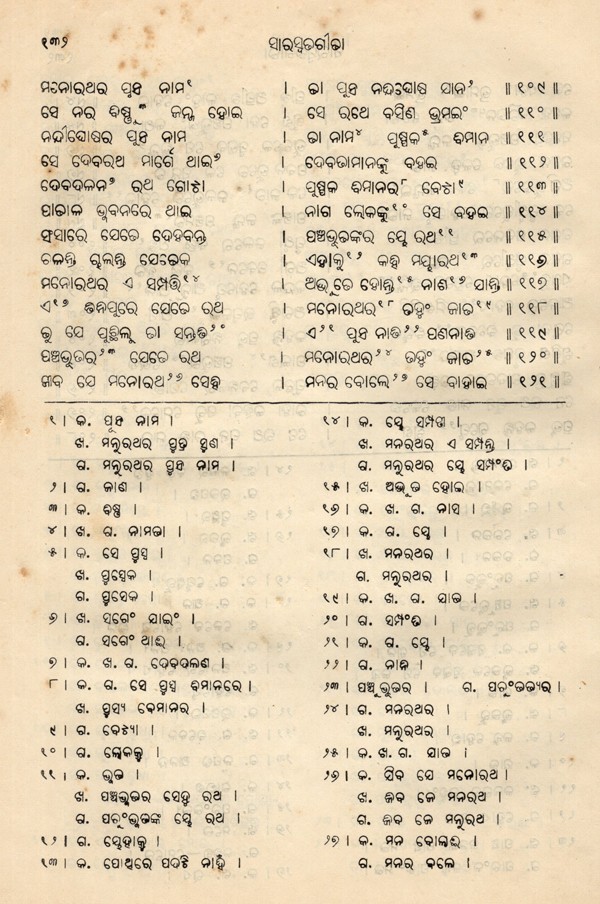 ୧୩୨ ସାରସ୍ୱତଗୀତା
ମନୋରଥର ପୁତ୍ର ନାମ୧ । ତା ପୁତ୍ର ନନ୍ଦିଘୋଷ ଯାନ୨ ॥ ୧୦୯ ॥
ସେ ନର ବିଷ୍ଣୁ୩ ଜନ୍ମ ହୋଇ । ସେ ରଥେ ବସିଣ ଭ୍ରମଇଂ ॥ ୧୧୦ ॥
ନନ୍ଦୀଘୋଷର ପୁତ୍ର ନାମ । ତା ନାମ୪ ପୁଷ୍ପକ୫ ବିମାନ ॥ ୧୧୧ ॥
ସେ ଦେବରଥ ମାର୍ଗେ ଥାଇ୬ । ଦେବତାମାନଙ୍କୁ ବହଇ ॥ ୧୧୨ ॥
ଦେବଦଳନ୭ ରଥ ଗୋଟା । ପୁଷ୍ପକ ବିମାନର୮ ବେଟା୯ ॥ ୧୧୩ ॥
ପାତାଳ ଭୁବନରେ ଥାଇ । ନାଗ ଲୋକଙ୍କୁ୧୦ ସେ ବହଇ ॥ ୧୧୪ ॥
ସଂସାରେ ଯେତେ ଦେହବନ୍ତ । ପଞ୍ଚଭୂତଙ୍କର ସେ ରଥ୧୧ ॥ ୧୧୫ ॥
ଚଳନ୍ତି ଯେତେକ । ଏହାକୁ୧୨ କହି ୧୩ ॥ ୧୧୬ ॥
ମନୋରଥର ଏ ସମ୍ପତ୍ତି୧୪ । ଅଦ୍ଭୁତେ ହୋନ୍ତି୧୫ ନାଶ୧୬ ଯାନ୍ତି ॥ ୧୧୭ ॥
ଏ୧୭ ତିନିପୁରେ ଯେତେ ରଥ । ମନୋରଥର୧୮ ତହୁଂ ଜାତ୧୯ ॥ ୧୧୮ ॥
ତୁ ଯେ ପୁଚ୍ଛିଲୁ ତା ସନ୍ତତି୨୦ । ଏ୨୧ ପୁତ୍ର ନାତି୨୨ ପଣନାତି ॥ ୧୧୯ ॥
ପଞ୍ଚଭୂତର୨୩ ଯେତେ ରଥ । ମନୋରଥର୨୪ ତହୁଂ ଜାତ୨୫ ॥ ୧୨୦ ॥
ଜୀବ ଯେ ମନୋରଥ୨୬ ସେହି । ମନର ବୋଲେ୨୭ ସେ ବାହାଇ ॥ ୧୨୧ ॥
୧। କ. ପୁତ୍ର ନାମ ।
ଖ. ମନୁରଥର ପୁତ୍ର ଶୁଣ ।
ଗ. ମନୁରଥର ପୁତ୍ର ନାମ ।
୨। ଗ. ଜାଣ ।
୩। କ. ବିଷ୍ଣୁ ।
୪। ଖ. ଗ. ନାମତା ।
୫। କ. ସେ ପୁସ୍ପ ।
ଖ. ପୁସ୍ପେକ ।
ଗ. ପୁସେକ ।
୬। ଖ. ସଗେଂ ସାଇଂ ।
ଗ. ସଗେଂ ଥାଈ ।
୭। କ. ଖ. ଗ. ଦେବଦଳଣ ।
୮। କ. ଗ. ସେ ପୁସ୍ପ ବିମାନରେ ।
ଖ. ପୁସ୍ୟ ବେମାନର ।
୯। ଗ. ବେଟ୍ୟା ।
୧୦। ଗ. ଲୋକକୁ ।
୧୧। କ. ଭୁତ ।
ଖ. ପଞ୍ଚଭୁତର ସେହୁ ରଥ ।
ଗ. ପଚୁଂଭୁତଙ୍କ ସ୍ୱେ ରଥ ।
୧୨। ଗ. ସ୍ୱେହାକୁ ।
୧୩। କ. ପୋଥିରେ ପଦଟି ନାହିଁ ।
୧୪। କ. ସ୍ୱେ ସମ୍ପତୀ ।
ଖ. ମନରଥର ଏ ସମ୍ପତ୍ତି ।
ଗ. ମନୁରଥର ସ୍ୱେ ସମ୍ପଂତି ।
୧୫। ଖ. ଅଦ୍ଭୁତ ହୋଇ ।
୧୬। କ. ଖ. ଗ. ନାସ ।
୧୭। କ. ଗ. ସ୍ୱେ ।
୧୮। ଖ. ମନରଥର ।
ଗ. ମନୁରଥର ।
୧୯। କ. ଖ. ଗ. ଯାତ ।
୨୦। ଗ. ସମ୍ପଂତି ।
୨୧। କ. ଗ. ସ୍ୱେ ।
୨୨। ଗ. ନାତି ।
୨୩। ପଞ୍ଚୁଭୁତର । ଗ. ପଚୁଂଭୁତ୍ୟର ।
୨୪। ଗ. ମନରଥର ।
ଖ. ମନୁରଥର ।
୨୫। କ. ଖ. ଗ. ଯାତ ।
୨୬। କ. ଯିବ ଯେ ମନୋରଥ ।
ଖ. ଜିବ ଜେ ମନରଥ ।
ଗ. ଜିବ ଜେ ମନୁରଥ ।
୨୭। କ. ମନ ବୋଲଇ ।
ଗ. ମନର ବଲେ ।